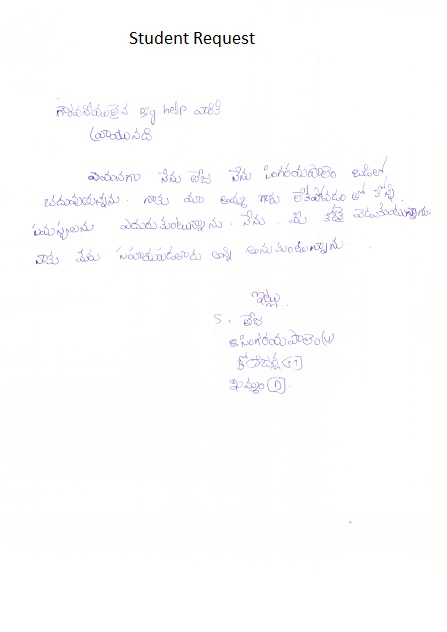 Student Request
గౌరవనీయులైన Big help వారికి
వ్రాయునది
ఏమనగా నేను తేజ నేను సింగరాయపాలెం
చదువుతున్నాను. నాకు మా అమ్మ గారు లేకపోవడం తో
సమస్యలను ఎదురుకుంటున్నాను. నేను. మీ
నాకు మీరు సహాయపడతారు అని అనుకుంటున్నాను
ఇట్లు
S. తేజ
సింగరాయపాలెం(V)
(M)
ఖమ్మం (D).